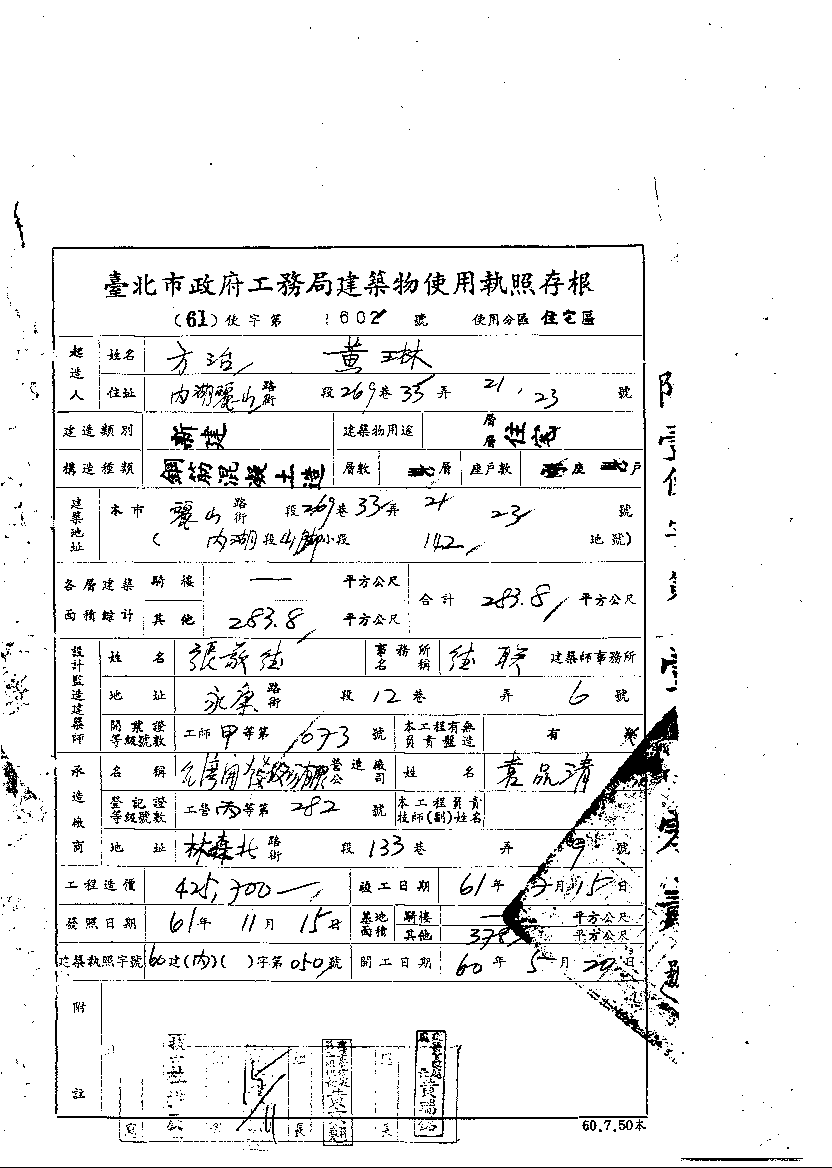 臺北市政府工務局建築物使用執照存根
(61)使字第 1602 號 使用分區 住宅區
起造人 姓名 方治 黃琳
住址 內湖麗山路街 段269巷33弄 21,23 號
建造類別 新建 建築物用途 層層 住宅
構造種類 鋼筋混凝土造 層數 層 座戶數 座 戶
建築地址 本市 麗山路街 段269巷33弄 21 23 號
( 內湖段山腳小段 142 地號)
各層建築面積總計 騎樓 — 平方公尺 合計 283.8 平方公尺
其他 283.8 平方公尺
設計監造建築師 姓名 張敬 事務所名稱 聯 建築師事務所
地址 永康路街 段12巷 弄 6 號
開業證等級號數 工師甲等第 673 號 本工程有無負責監造 有
承造廠商 名稱 營造廠公司 姓名 袁品清
登記證等級號數 工營丙等第 282 號 本工程負責技師(副)姓名
地址 林森北路街 段133巷 弄 9 號
工程造價 425,700— 竣工日期 61年 月15日
發照日期 61年 11月 15日 基地面積 騎樓 — 平方公尺
其他 378 平方公尺
建築執照字號 60建(內)( )字第050號 開工日期 60年 5月 20日
附註
60.7.50本